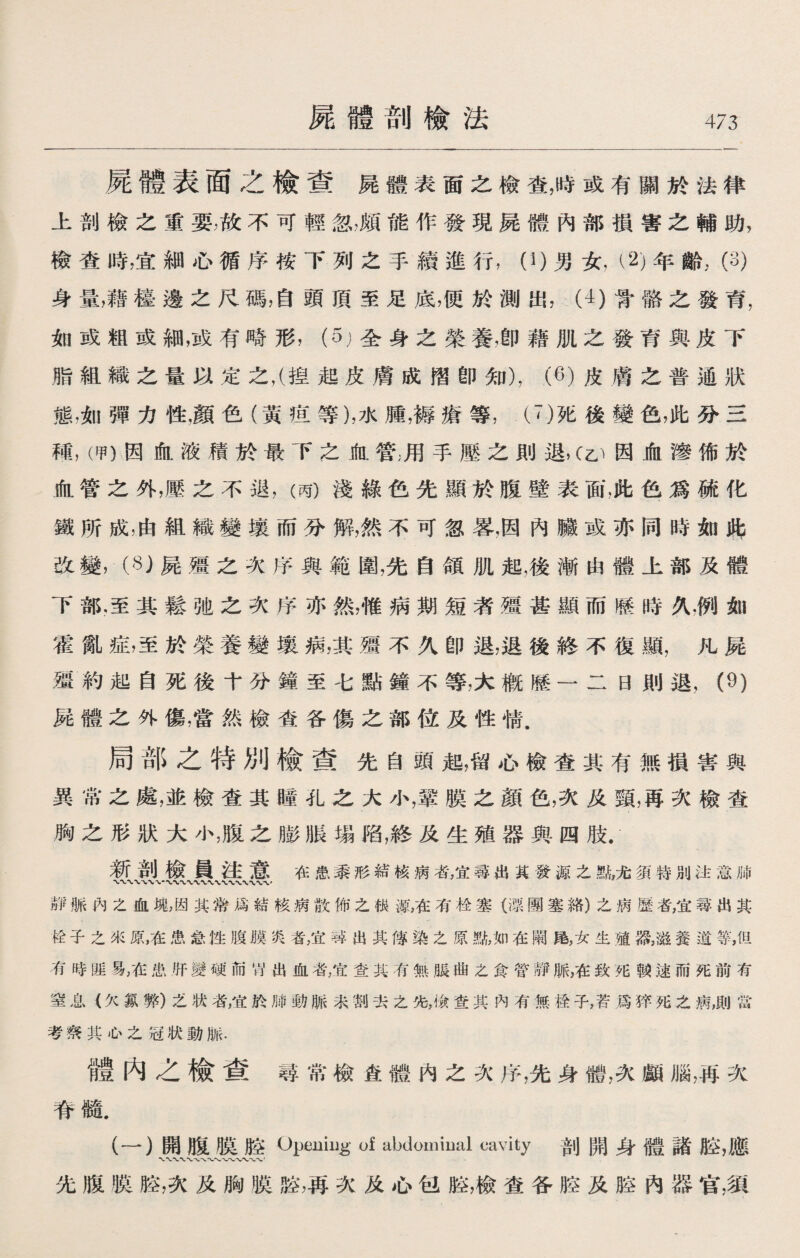 屍體剖檢法 473
屍體表面之檢查 屍體表面之檢查,時或有關於法律
上剖檢之重要,故不可輕忽,頗能作發現屍體內部損害之輔助,
檢查時,宜細心循序按下列之手續進行, (1)男女, (2)年齡, (3)
身量,藉檯邊之尺碼,自頭頂至足底,便於測出, (4)骨骼之發育,
如或粗或細,或有畸形, (5)全身之榮養,卽藉肌之發育與皮下
脂組織之量以定之,(揑起皮膚成摺卽知), (6)皮膚之普通狀
態,如彈力性,顏色(黃疸等),水腫,褥瘡等, (7)死後變色,此分三
種, (甲)因血液積於最下之血管,用手壓之則退, (乙)因血滲佈於
血管之外,壓之不退, (丙) 淺綠色先顯於腹壁表面,此色爲硫化
鐵所成,由組織變壞而分解,然不可忽畧,因內臟或亦同時如此
改變, (8)屍殭之次序與範圍,先自頷肌起,後漸由體上部及體
下部,至其鬆弛之次序亦然,惟病期短者殭甚顯而歷時久,例如
霍亂症,至於榮養變壞病,其殭不久卽退,退後終不復顯, 凡屍
殭約起自死後十分鐘至七點鐘不等,大概歷一二日則退, (9)
屍體之外傷,當然檢查各傷之部位及性情.
局部之特別檢查 先自頭起,留心檢查其有無損害與
異常之處,並檢查其瞳孔之大小,鞏膜之顏色,次及頸,再次檢查
胸之形狀大小,腹之膨脹塌陷,終及生殖器與四肢.
新剖檢員注意 在患黍形結核病者,宜尋出其發源之點,尤須特別注意肺
靜脈內之血塊,因其常爲結核病散佈之根源,在有栓塞(漂團塞絡)之病歷者,宜尋出其
栓子之來原,在患急性腹膜炎者,宜尋出其傳染之原點,如在闌尾,女生殖器,滋養道等,但
有時匪易,在患肝變硬而胃出血者,宜查其有無脹曲之食管靜脈,在致死較速而死前有
窒息(欠氣弊)之狀者,宜於肺動脈未割去之先,檢查其內有無栓子,若爲猝死之病,則當
考察其心之冠狀動脈.
體內之檢查 尋常檢查體內之次序,先身體,次顱腦,再次
脊髓.
(一)開腹膜腔 Opening of abdominal cavity 剖開身體諸腔,應
先腹膜腔,次及胸膜腔,再次及心包腔,檢查各腔及腔內器官,須